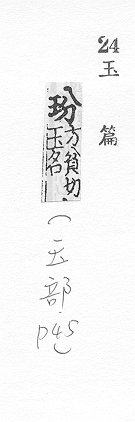 24
玉篇
玢
方貧切
玉名
(玉部.
P45)